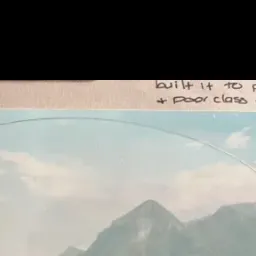 built it to
+ poor class